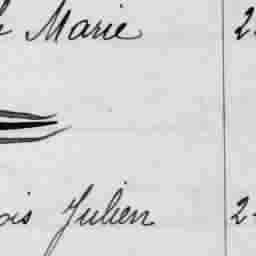 Marie 2
ois Julien 2